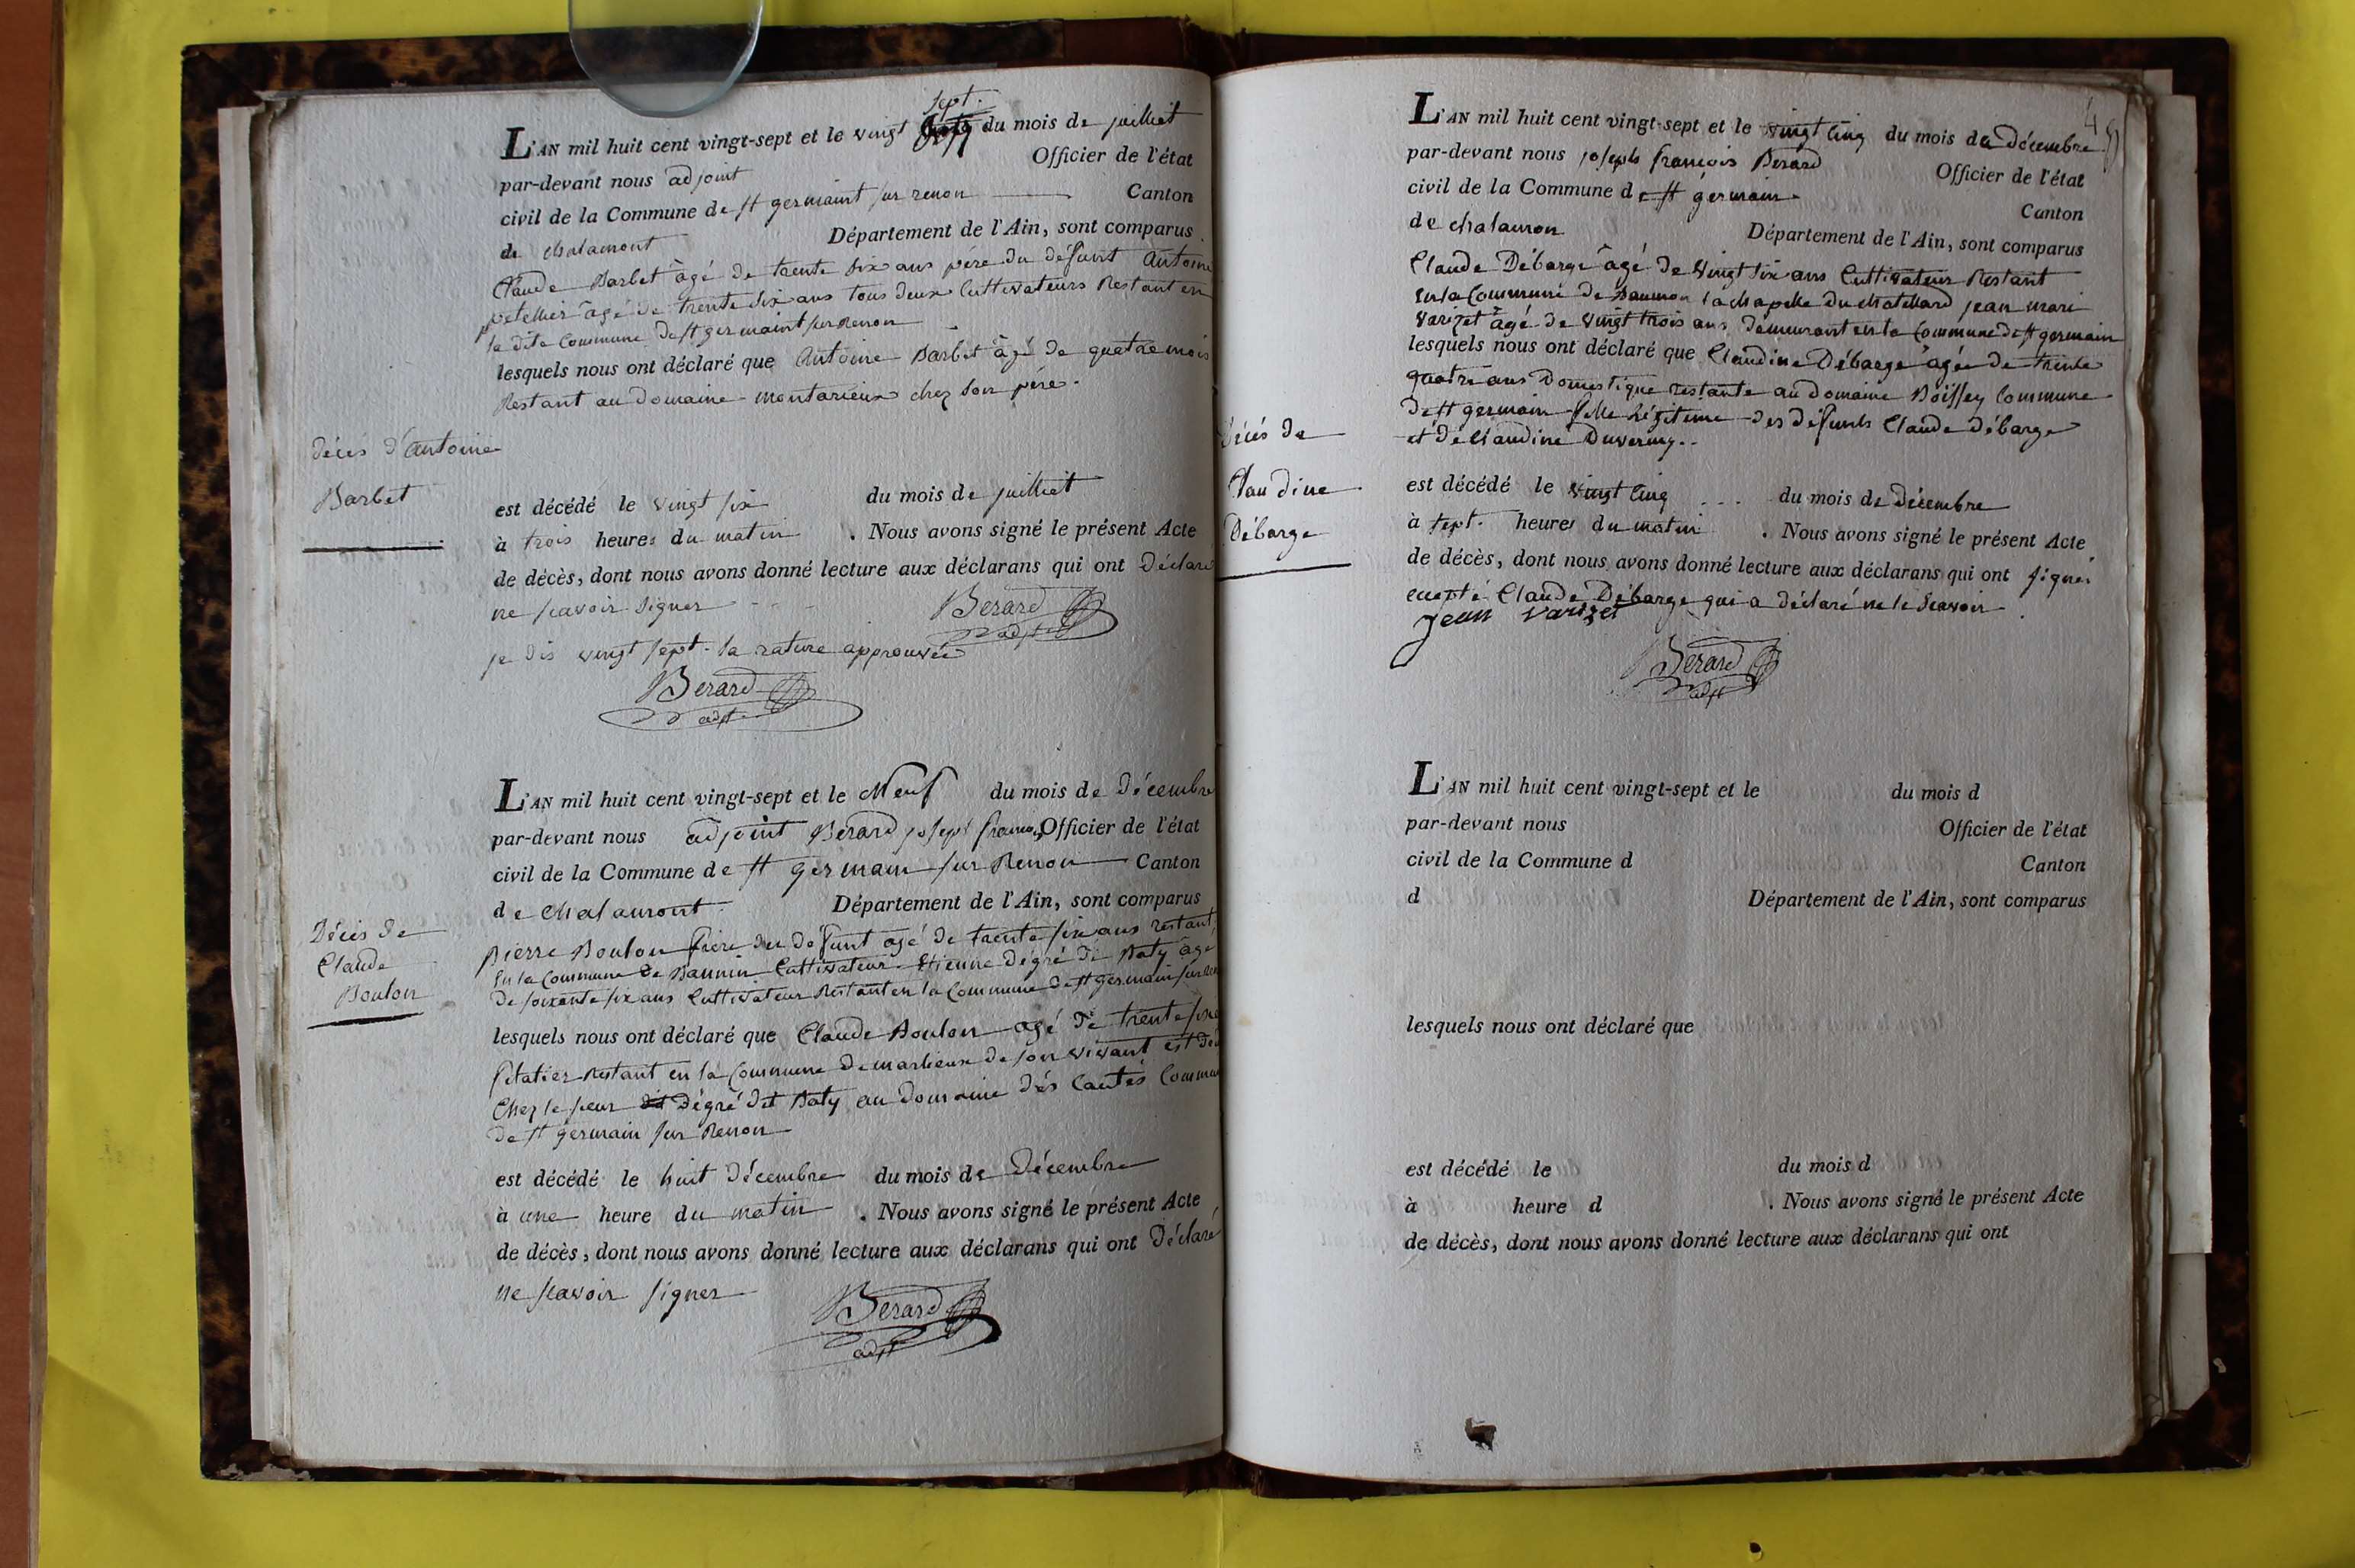 sept.
L'AN mil huit cent vingt-sept et le vingt du mois de juilliet
par-devant nous adjoint Officier de l'état
civil de la Commune de st germaint sur renon Canton
de chalamont Département de l'Ain, sont comparus
Claude Barbet âgé de trente six ans père du défunt Antoine
petellier âgé de trente six ans tous deux Cultivateurs Restant en
la dite Commune de st germaint sur Renon
lesquels nous ont déclaré que Antoine Barbet âgé de quatre mois
Restant au domaine montarieux chez son père.
décés d'antoine
Barbet
est décédé le vingt six du mois de juilliet
à trois heures du matin . Nous avons signé le présent Acte
de décès, dont nous avons donné lecture aux déclarans qui ont déclaré
ne scavoir signer
Berard
adjt
je dis vingt sept. la rature approuvée
Berard
adjt
L'AN mil huit cent vingt-sept et le Neuf du mois de Décembre
par-devant nous adjoint Berard joseph françois Officier de l'état
civil de la Commune de st germain sur Renon Canton
de chalamont Département de l'Ain, sont comparus
Décès de
Claude
Boulon
pierre Boulon frère du défunt agé de trente six ans restant
En la Commune de Baunin Cultivateur Etienne dégré dit Baty âgé
de soixante six ans Cultivateur Restant en la Commune de st germain sur
lesquels nous ont déclaré que Claude Boulon agé de trente six
Restant en la Commune de marlieux de son vivant est
Chez le sieur dégré dit Baty au domaine dés Cautés
de st germain sur Renon
est décédé le huit décembre du mois de Décembre
à une heure du matin . Nous avons signé le présent Acte
de décès, dont nous avons donné lecture aux déclarans qui ont Déclaré
ne scavoir signer
Berard
adjt
4
L'AN mil huit cent vingt-sept et le vingt cinq du mois de décembre
par-devant nous joseph françois Berard Officier de l'état
civil de la Commune de st germain Canton
de chalamon Département de l'Ain, sont comparus
Claude Débarge âgé de vingt six ans Cultivateur Restant
En la Commune de la chapelle du chatellard jean mari
Varizet âgé de vingt trois ans, demeurant en la Commune de st germain
lesquels nous ont déclaré que Claudine Débarge âgée de trente
quatre ans Domestique restante au domaine Boissey Commune
de st germain fille légitime des défunts Claude Débarge
et de Claudine
Décés de
Claudine
Débarge
est décédé le vingt cinq du mois de Décembre
à sept. heures du matin . Nous avons signé le présent Acte
de décès, dont nous avons donné lecture aux déclarans qui ont signés
excepté Claude Débarge qui a déclaré ne le scavoir
jean varizet
Berard
adjt
L'AN mil huit cent vingt-sept et le du mois d
par-devant nous Officier de l'état
civil de la Commune d Canton
d Département de l'Ain, sont comparus
lesquels nous ont déclaré que
est décédé le du mois d
à heure d . Nous avons signé le présent Acte
de décès, dont nous avons donné lecture aux déclarans qui ont